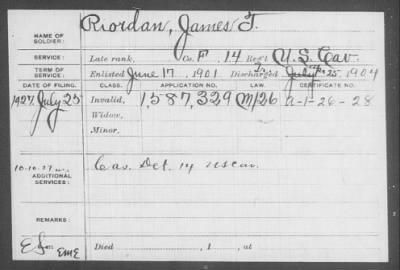 NAME OF SOLDIER: Riordan, James T.
SERVICE: Late rank, Co. F, 14 Reg't U.S. Cav.
TERM OF SERVICE: Enlisted June 17, 1901 Discharged July 25, 1904
DATE OF FILING. CLASS. APPLICATION NO. CERTIFICATE NO.
1927, July 25 Invalid, 1,587,329 A-1-26-28
Widow,
Minor,
ADDITIONAL SERVICES: Cav. Det. 14 US Cav.
REMARKS:
EME Died , 1 , at